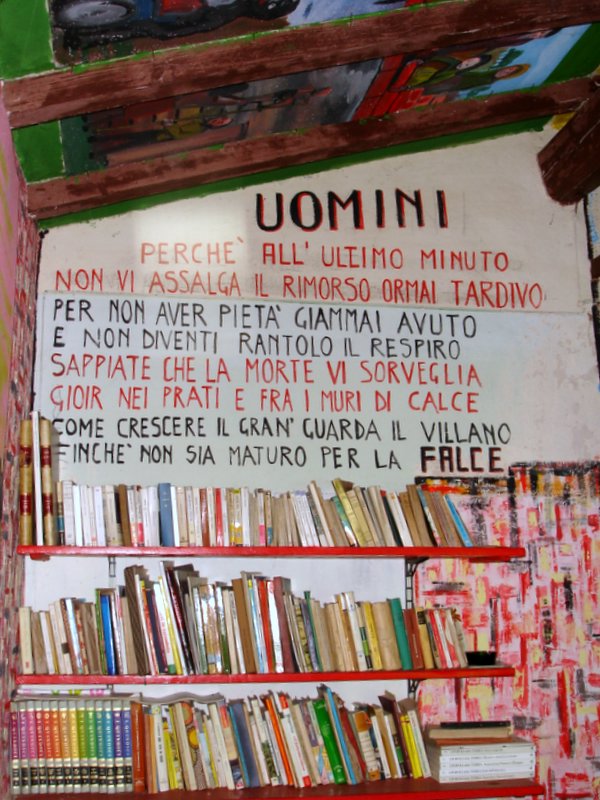 UOMINI
PERCHE` ALL' ULTIMO MINUTO
NON VI ASSALGA IL RIMORSO ORMAI TARDIVO
PER NON AVER PIETA' GIAMMAI AVUTO
E NON DIVENTI RANTOLO IL RESPIRO
SAPPIATE CHE LA MORTE VI SORVEGLIA
GIOIR NEI PRATI E FRA I MURI DI CALCE
COME CRESCERE IL GRAN' GUARDA IL VILLANO
FINCHE' NON SIA MATURO PER LA FALCE